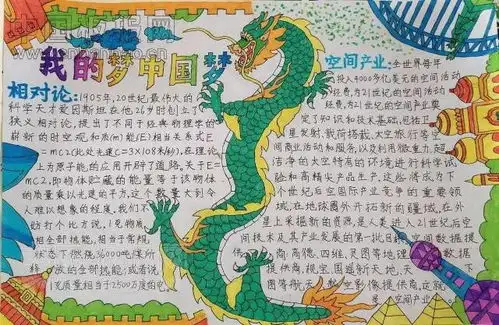 我的梦中国梦
相对论:1905年,20世纪最伟大的
科学天才爱因斯坦在他26岁时创立了
狭义相对论,提出了不同于经典物理学的
崭新的时空观和质(m)能(E)相当关系式E
=mC2(此处光速C=3×108米/秒),在理论
上为原子能的应用开辟了道路。关于E=
mC2,即物体贮藏的能量等于该物体
的质量乘以光速的平方,这个数量大到令
人难以想象的程度,我们不
妨打个比方说,1克物质
相当于常规
状态下燃烧36000吨煤所
放的全部热能;或者说
1克质量相当于2500万度的电
空间产业:全世界每年
投入4000多亿美元的空间活动
经费,为21世纪的空间活动
经费,为21世纪的空间产业奠
定了知识和技术基础,包括卫
星发射、载荷搭载、太空旅行等空
间商业活动和服务,以及利用微重力、超
洁净的太空特高的环境进行科学试
验和高精尖产品生产。这些将成为下
个世纪后空国际产业竞争的重要领
域。在地球圈外开拓新的疆域,在外
星上采掘新的资源,是人类进入21世纪后
空间技术及其产业发展的第一批目标。空间数据提
供商:高德、四维、灵图等地理
提供商,视宝、国遥新天地、天
下图等航天、航空影像提供商,这就
是空间产业